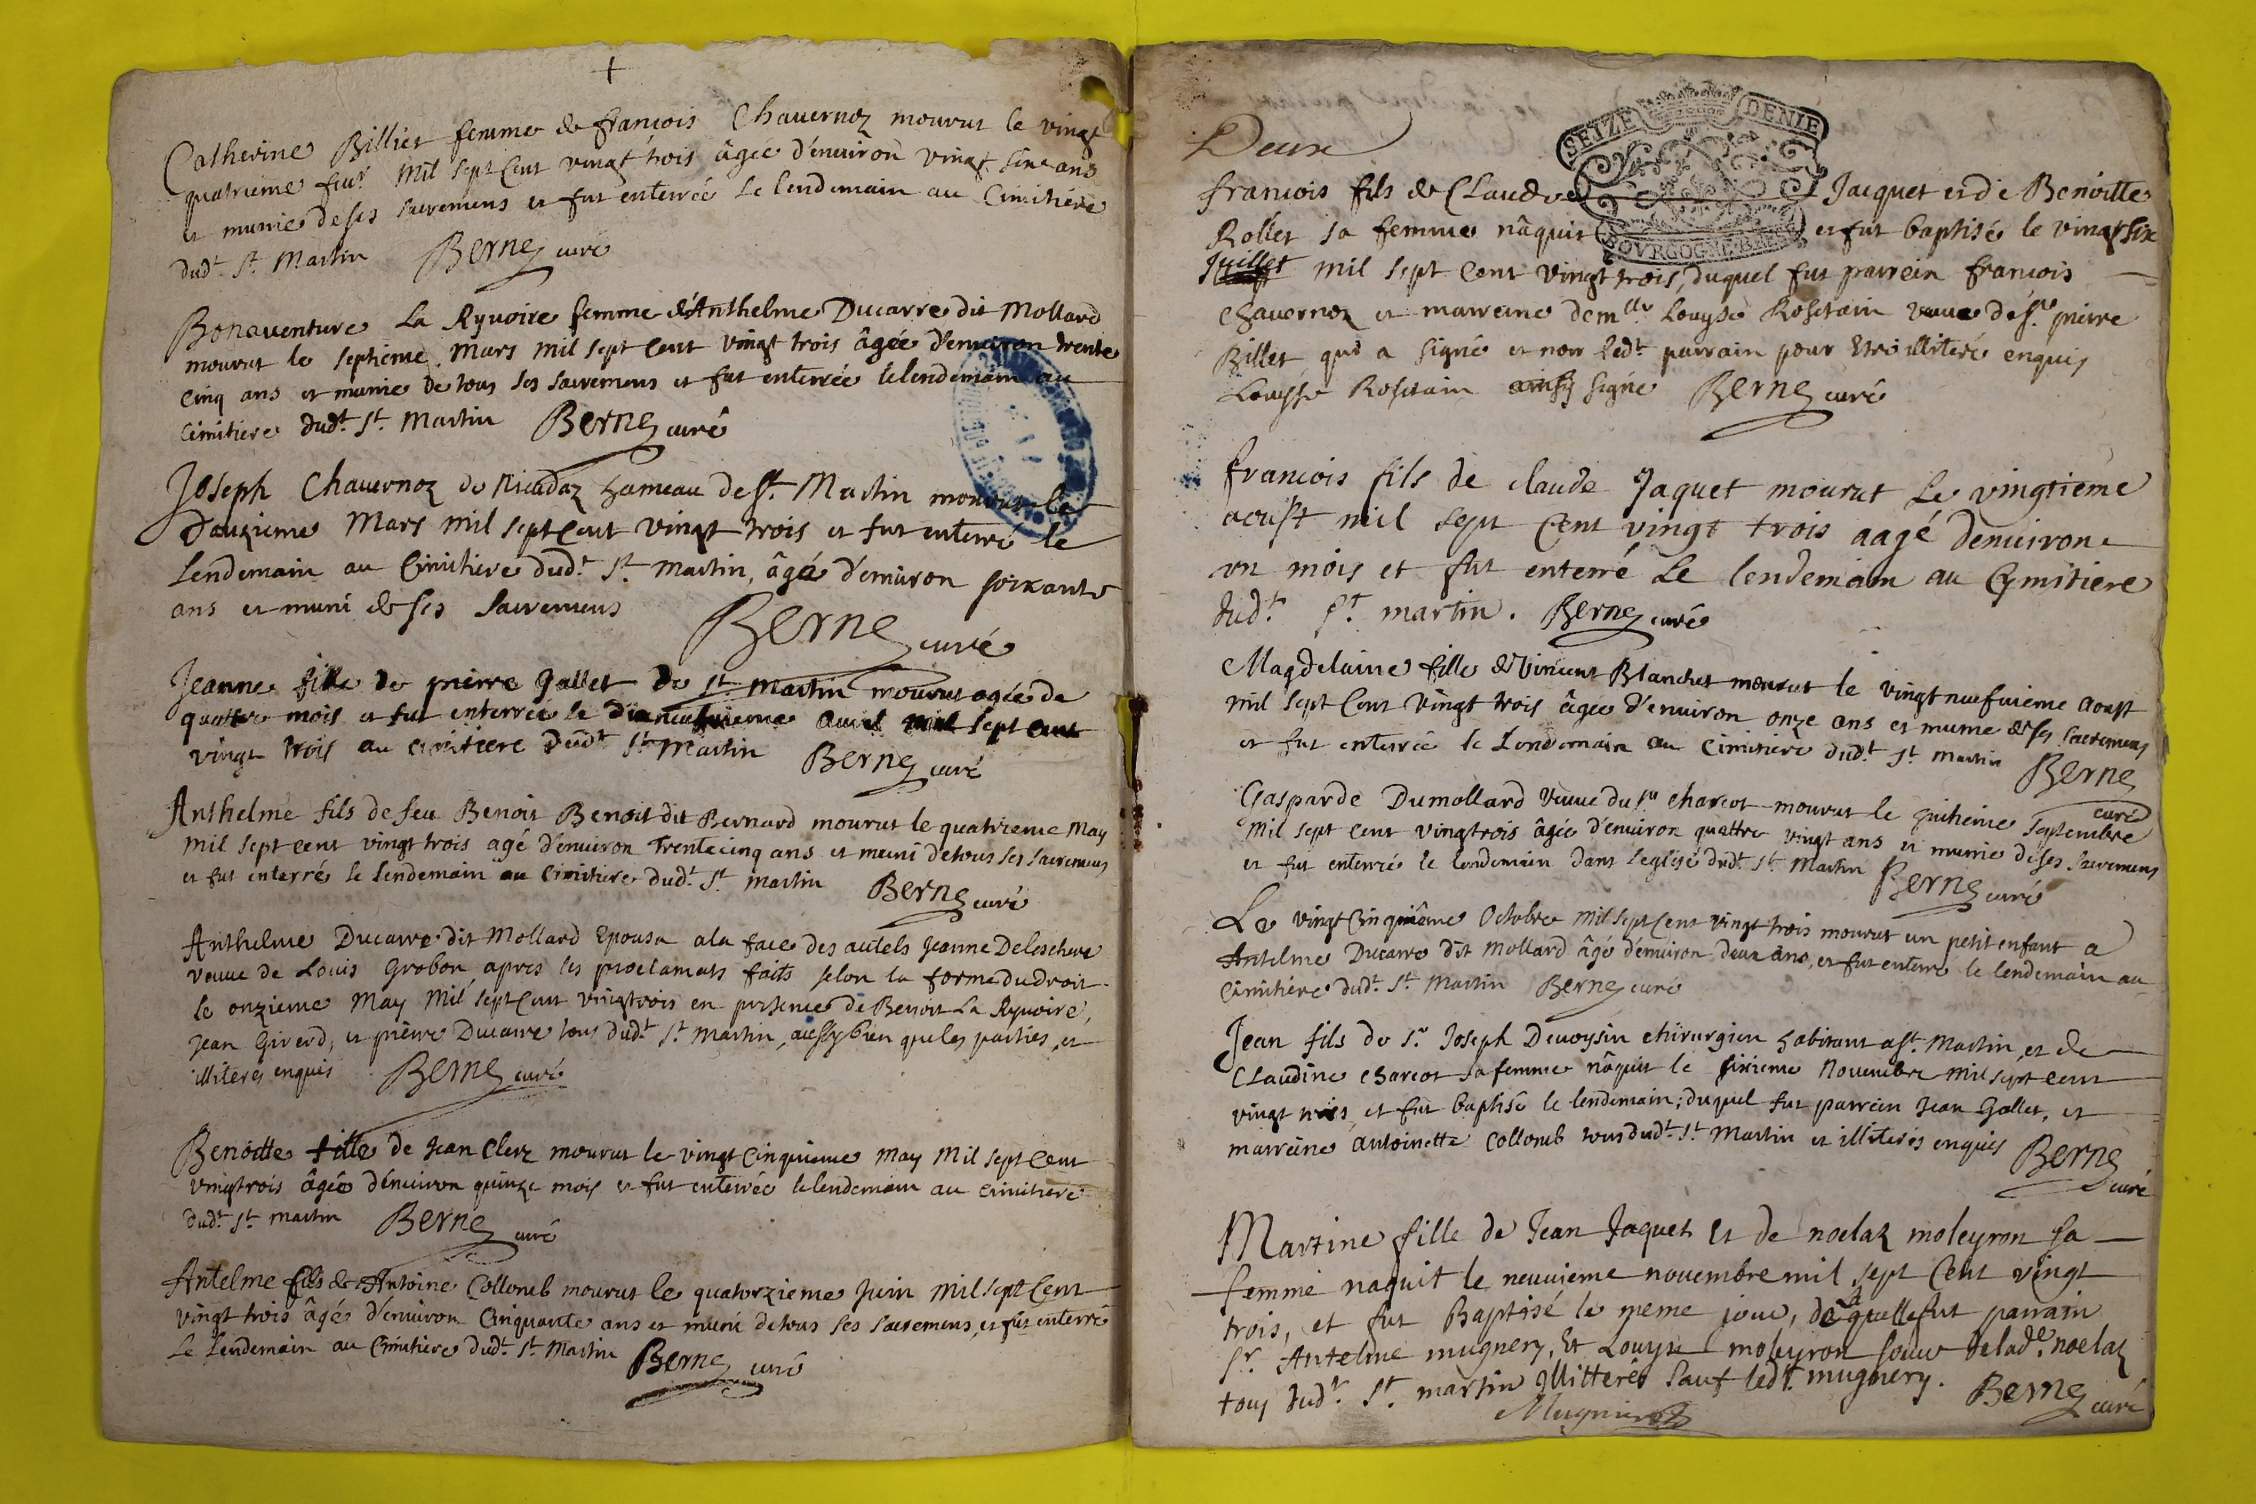 Catherine Billiet femme de françois Chavernoz mourut le vingt
quatrieme feur. Mil sept Cent vingt trois âgée d'enuiron vingt ans
et munie de ses sacremens et fut enterrée le lendemain au Cimitiére
dudt. St. Martin Berne curé
Bonaventure La Ryvoire femme d'Anthelme Ducarre dit Mollard
mourut le septieme Mars mil sept Cent vingt trois âgée d'enuiron trente
Cinq ans et munie de tous ses sacremens et fut enterrée le lendemain au
Cimitiere dudt. St. Martin Berne curé
Joseph Chavernoz de hameau de St. Martin mourut le
Douzieme Mars mil sept Cent vingt trois et fut enterré le
Lendemain au Cimitiere dudt. St. Martin, âgé d'enuiron soixante
ans et muni de ses Sacremens
Berne curé
Jeanne fille de pierre Gallet de St. Martin mourut agée de
quattre mois et fut enterrée le dixneufuieme auril mil sept cent
vingt trois au cimitiere dudt. St. Martin Berne curé
Anthelme fils de feu Benoit Benoit dit Bernard mourut le quatrieme May
mil sept cent vingt trois agé d'enuiron Trente cinq ans et muni de tous ses sacremens
et fut enterré le lendemain au Cimitiere dudt. St. Martin Berne curé
Anthelme Ducarre dit Mollard Epousa a la face des autels Jeanne Delescheve
veuue de Louis Grobon apres les proclamats faits selon la forme du droit
le onzieme May Mil sept Cent vingtrois en presence de Benoit La Ryvoire,
Jean Giverd, et pierre Ducarre tous dudt. St. Martin, aussy bien que les parties, et
illiterés enquis Berne curé
Benoitte fille de Jean Clerc mourut le vingt Cinquieme May Mil sept Cent
vingtrois âgée d'enuiron quinze mois et fut enterrée le lendemain au Cimitiere
dudt. St. Martin Berne curé
Antelme fils de Antoine Collomb mourut le quatorzieme Juin Mil sept Cent
vingt trois âgé d'enuiron Cinquante ans et muni de tous ses sacremens, et fut enterré
Le Lendemain au Cimitiere dudt. St. Martin Berne curé
Deux
SEIZE DENIE
françois fils de Claude Jacquet et de Benoitte
Rollet sa femme nâquit et fut baptisé le vingt six
Juillet mil sept Cent vingt trois, duquel fut parrein francois
Chavernoz et marreine demlle Louyse Rosetain veuue de Sr. pierre
Billet qui a signé et non ledt. parrain pour etre illiteré enquis
Louyse Rosetain ainsy signé Berne curé
francois fils de claude Jaquet mourut Le vingtieme
aoust mil sept Cent vingt trois aagé denuiron
un mois et fut enterré Le lendemain au Cymitiere
dudt. St. martin. Berne curé
Magdelaine fille de Vincent Blanchet mourut le vingt neufuieme Aoust
mil sept Cent vingt trois âgée d'enuiron onze ans et munie de ses sacremens
et fut enterrée le Lendemain au Cimitiere dudt. St. Martin Berne
curé
Gasparde Dumollard veuue du Sr Charcot mourut le huitieme Septembre
Mil sept cent vingtrois âgée d'enuiron quattre vingt ans et munie de ses sacremens
et fut enterrée le lendemain dans leglise dudt. St. Martin Berne curé
Le vingt Cinquième Octobre Mil sept Cent vingt trois mourut un petit enfant a
Antelme Ducarre dit Mollard âgé d'enuiron deux ans, et fut enterré le lendemain au
Cimitiére dudt. St. Martin Berne curé
Jean fils de Sr. Joseph Devoysin chirurgien habitant a St. Martin, et de
Claudine Charcot sa femme nâquit le sixieme Nouembre mil sept cent
vingt trois et fut baptisé le lendemain; duquel fut parrein Jean Gallet, et
marreine Antoinette Collomb tous dudt. St. Martin et illiterés enquis Berne
curé
Martine fille de Jean Jaquet Et de noelaz moleyron sa
femme naquit le neuuieme nouembre mil sept Cent vingt
trois, et fut Baptisé le meme jour, de laquelle fut parrain
Sr Antelme mugnery, Et Louyse moleyron soeur de lade. noelaz
tous dudt. St. martin Jllitterés Sauf ledt. mugnery. Berne curé
Mugnier